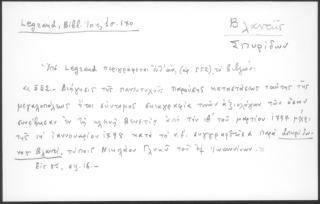 Legrand, Bibl. Ion, σσ. 170
Βλαντῆς
Σπυρίδων
Ὑπὸ Legrand περιγράφεται (ἀρ. 552), τὸ βιβλίον:
« 552. Διήγησις τῆς παντοτινῆς παρούσης καταστάσεως ταύτης τῆς
μεγαλοπόλεως ἤτοι σύντομος συγγραφία τινῶν ἀξιολόγων τῶν ὅσων
συνέβησαν ἐν τῇ κλεινῇ Βενετίᾳ ἀπὸ τὴν τοῦ μαρτίου 1797 μέχρι
τῆς ιη' ἰαννουαρίου 1798 κατὰ τὸ συγγραφθεῖσα παρὰ Σπυρίδω-
νος Βλαντῆ, τύποις Νικολάου Γλυκοῦ τοῦ ἐξ Ἰωαννίνων. »
Εἰς 8ον, σσ. 16.—